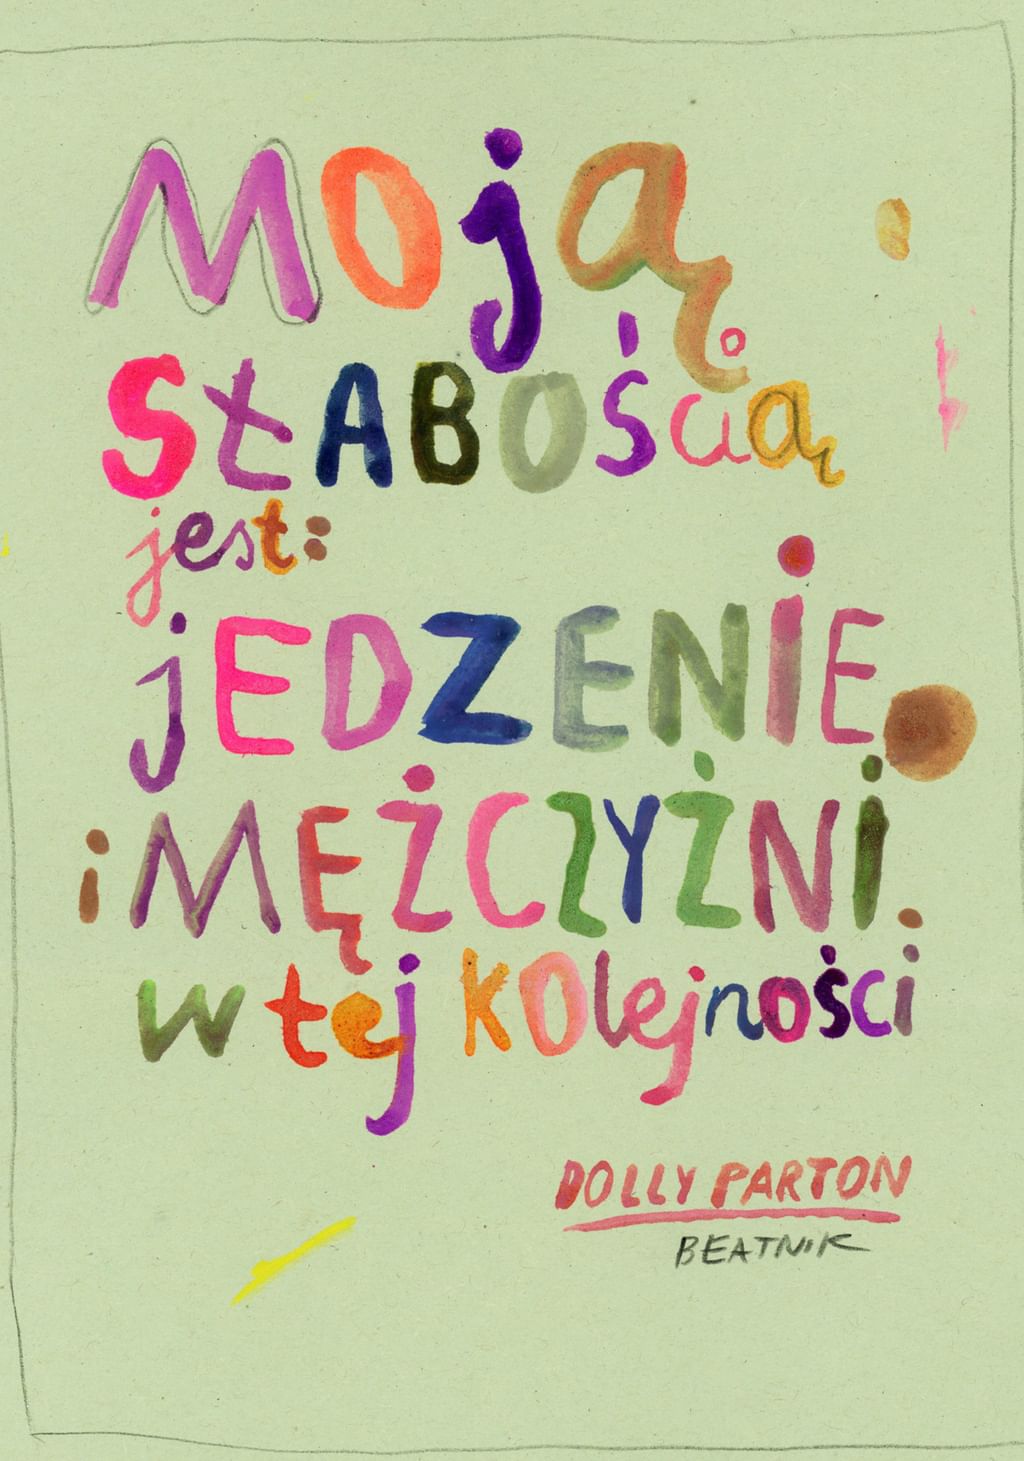 MOją
SŁABOŚcią
jest:
jEDZENiE
i MĘŻCZYŻNi.
w tej KOlejności
DOLLY PARTON
BEATNIK